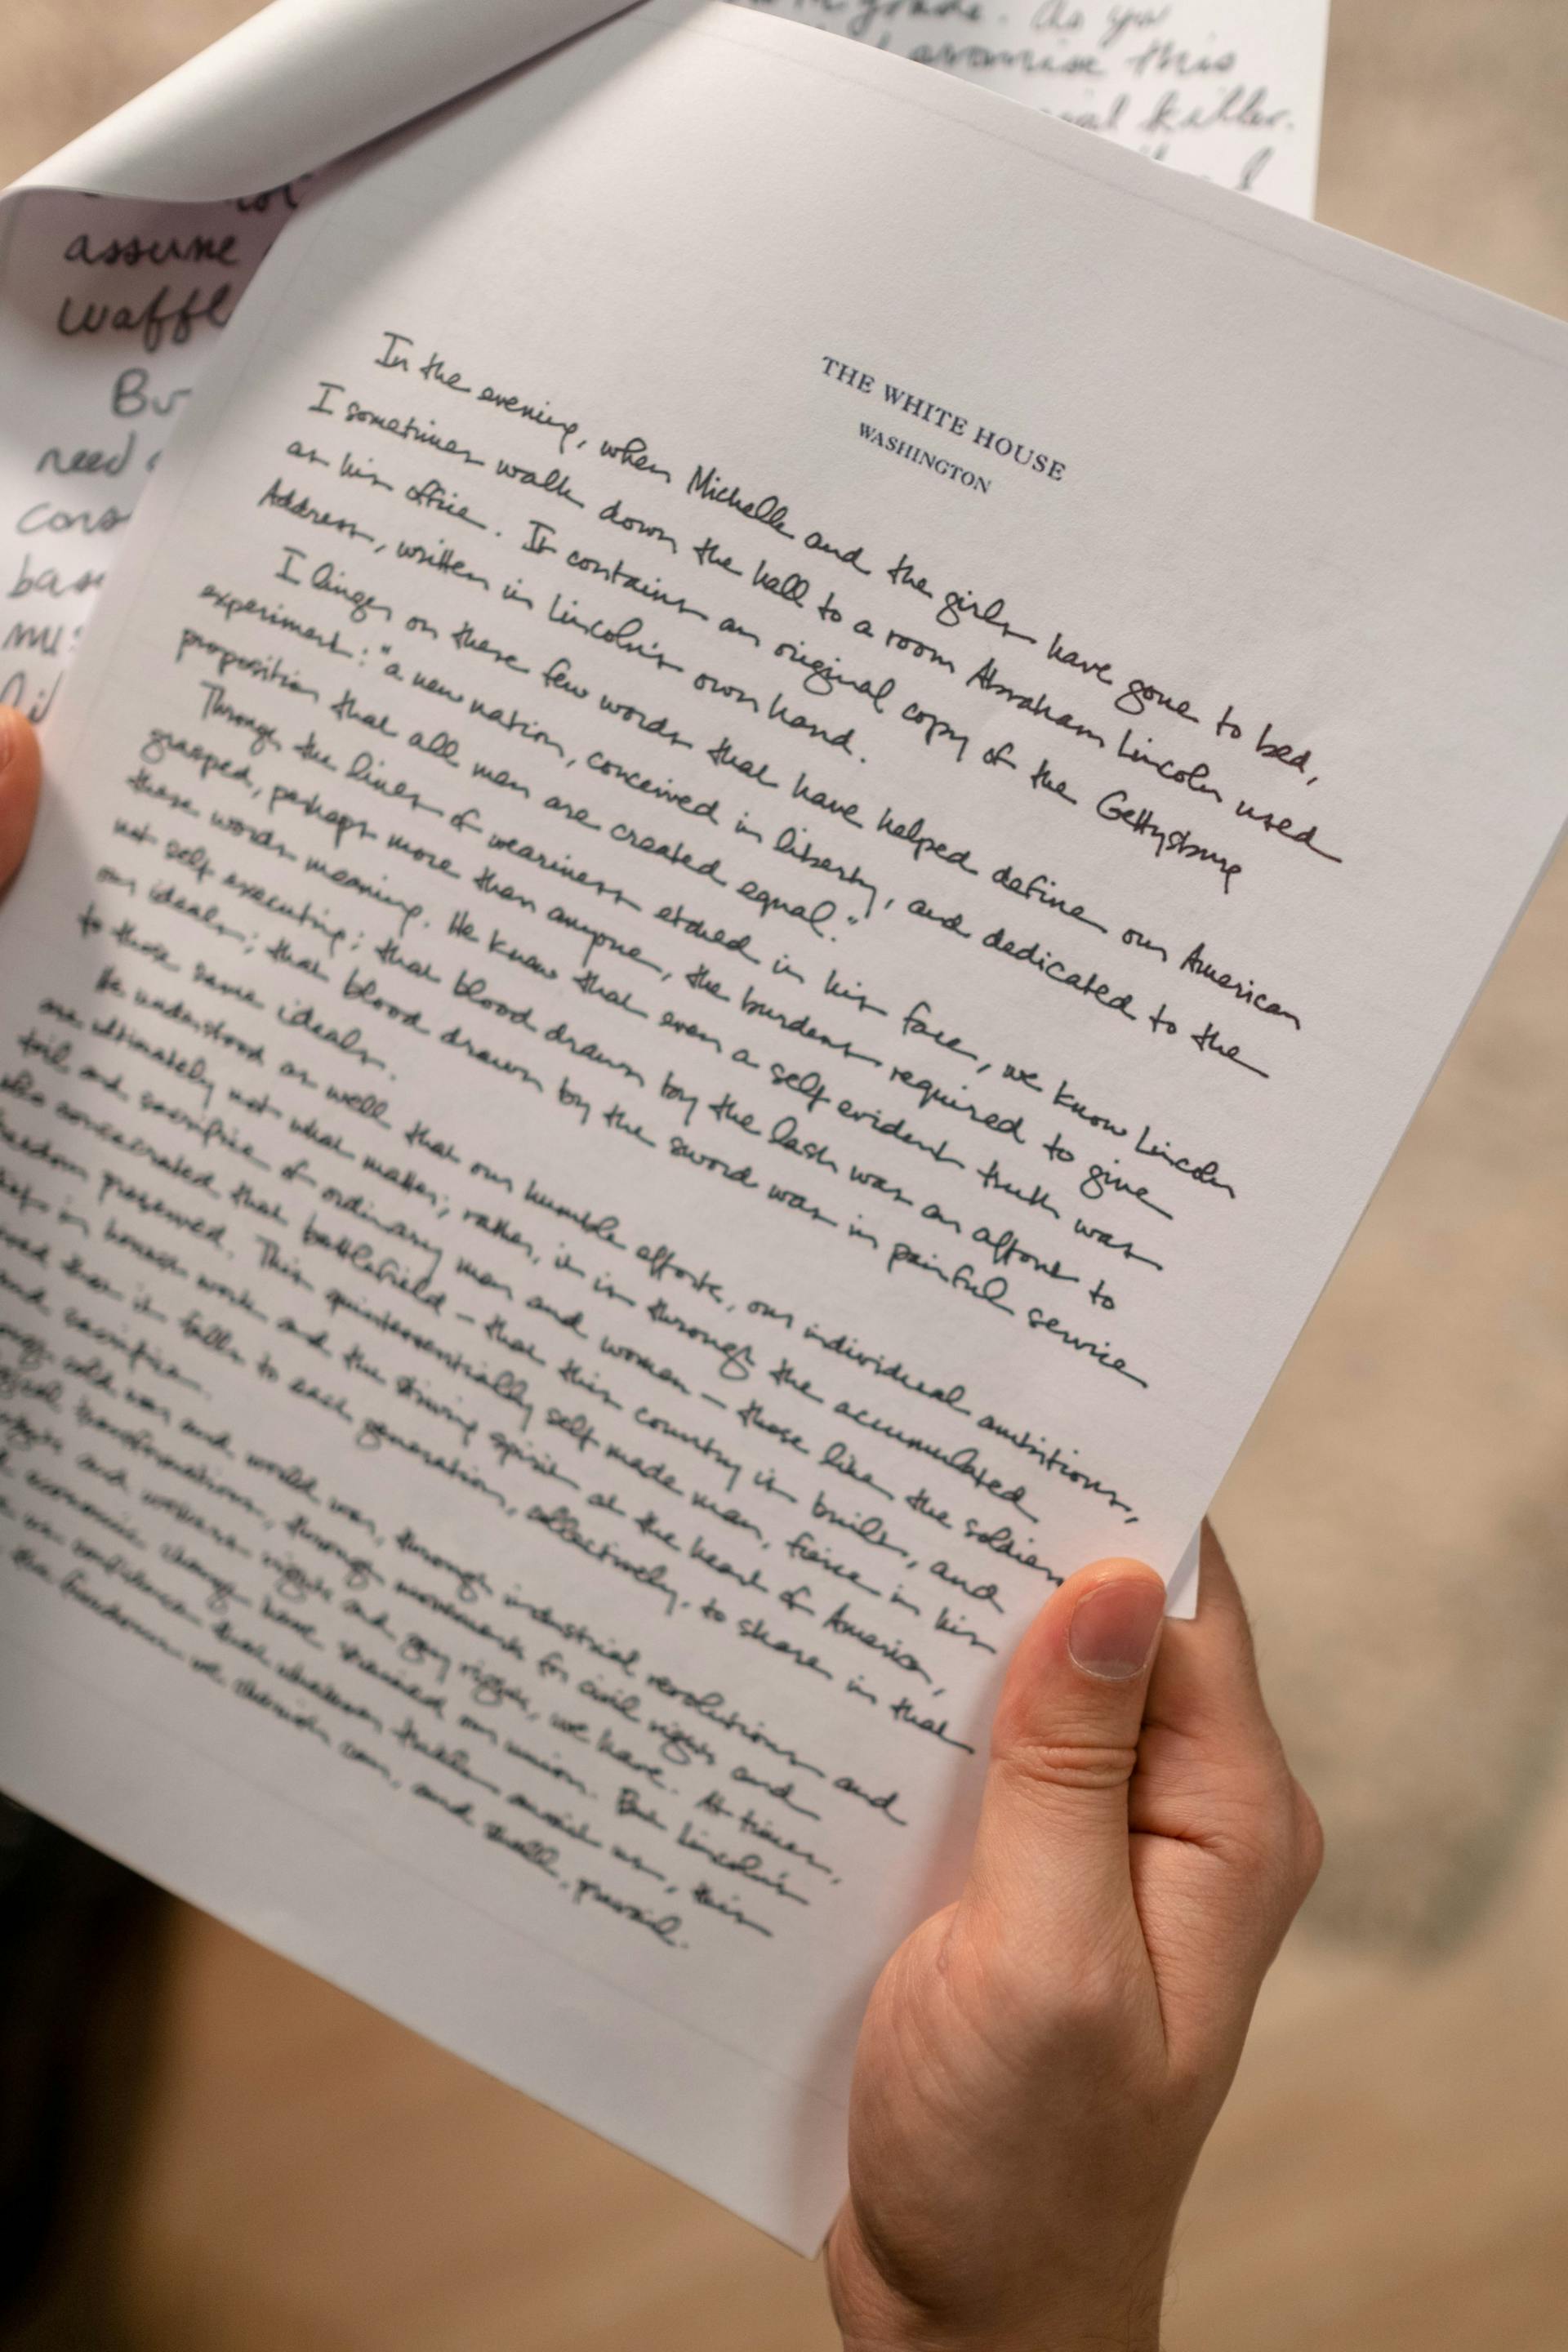 THE WHITE HOUSE
WASHINGTON
In the evening, when Michelle and the girls have gone to bed,
I sometimes walk down the hall to a room Abraham Lincoln used
as his office. It contains an original copy of the Gettysburg
Address, written in Lincoln's own hand.
I linger on these few words that have helped define our American
experiment: "a new nation, conceived in liberty, and dedicated to the
proposition that all men are created equal."
Through the lines of weariness etched in his face, we know Lincoln
grasped, perhaps more than anyone, the burdens required to give
these words meaning. He knew that even a self evident truth was
not self executing; that blood drawn by the lash was an affront to
our ideals; that blood drawn by the sword was in painful service
to those same ideals.
He understood as well that our humble efforts, our individual ambitions,
are ultimately not what matter; rather, it is through the accumulated
toil and sacrifice of ordinary men and women – those like the soldiers
who consecrated that battlefield – that this country is built, and
freedom preserved. This quintessentially self made man, fierce in his
in honest work and the striving spirit at the heart of America,
that it falls to each generation, collectively, to share in that
and sacrifice.
cold war and world war, through industrial revolutions and
transformations, through movements for civil rights and
and women's rights and gay rights, we have. At times,
economic change have strained our union. But Lincoln's
us confidence that whatever trials await us, this
the freedom we cherish can, and shall, prevail.
grade. As you
promise this
killer.
I
assume
need